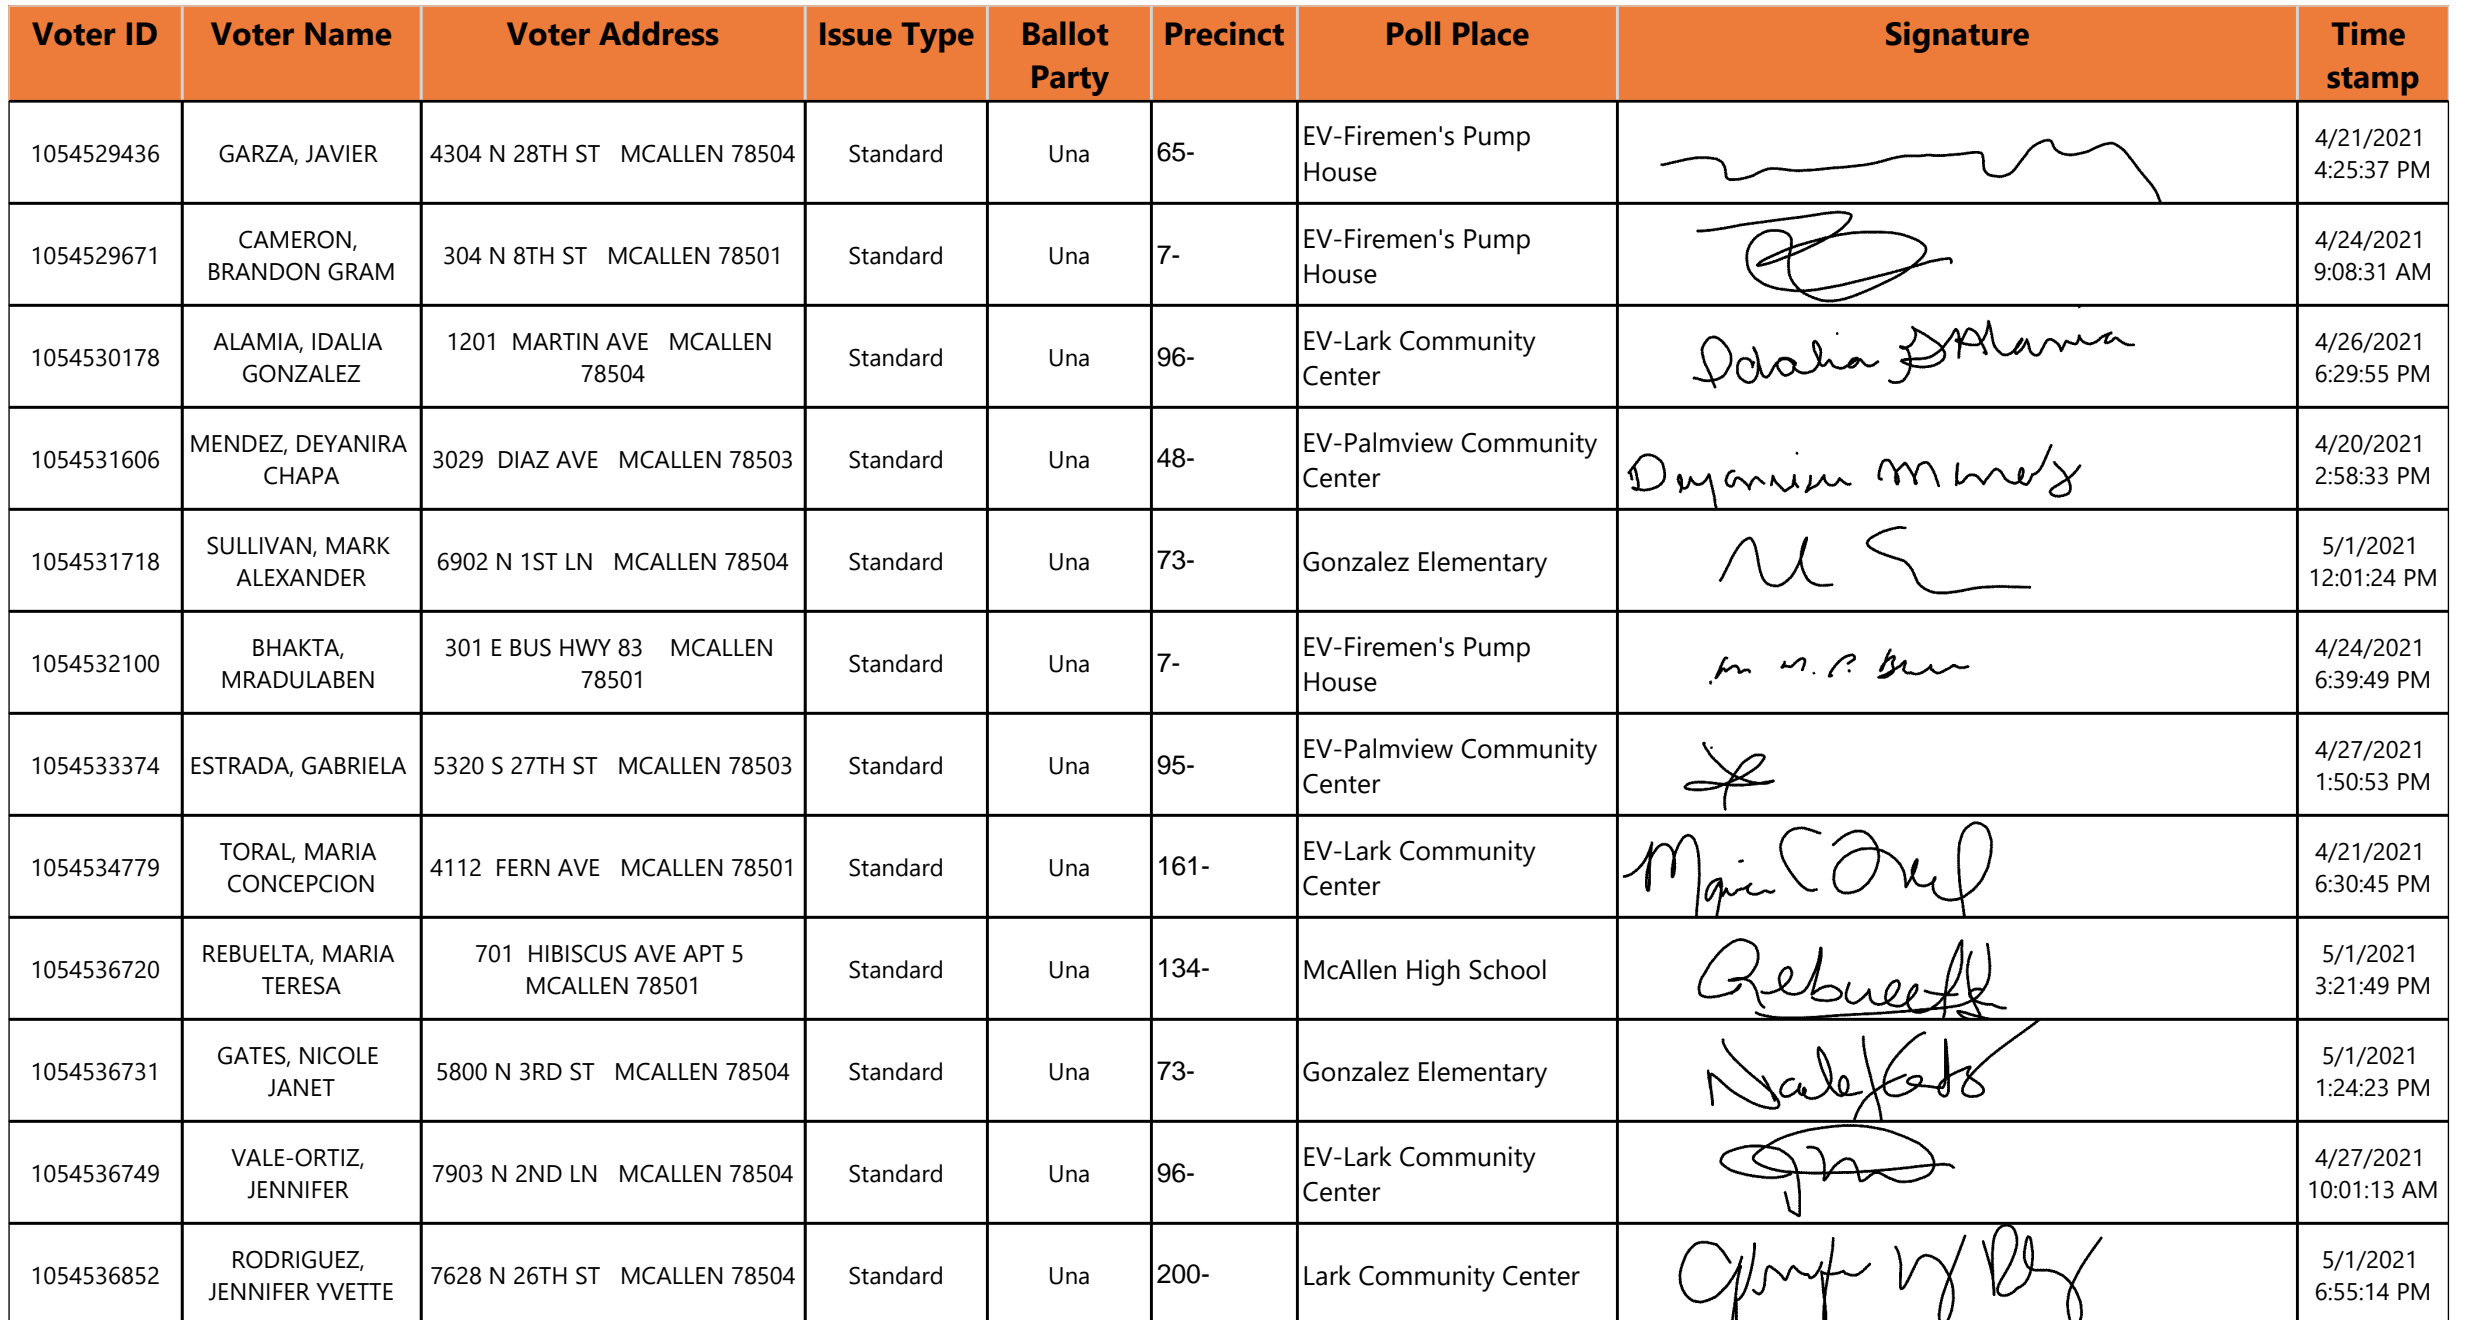 Voter ID Voter Name Voter Address Issue Type Ballot Party Precinct Poll Place Signature Time stamp
1054529436 GARZA, JAVIER 4304 N 28TH ST MCALLEN 78504 Standard Una 65- EV-Firemen's Pump House 4/21/2021 4:25:37 PM
1054529671 CAMERON, BRANDON GRAM 304 N 8TH ST MCALLEN 78501 Standard Una 7- EV-Firemen's Pump House 4/24/2021 9:08:31 AM
1054530178 ALAMIA, IDALIA GONZALEZ 1201 MARTIN AVE MCALLEN 78504 Standard Una 96- EV-Lark Community Center Idalia G Alamia 4/26/2021 6:29:55 PM
1054531606 MENDEZ, DEYANIRA CHAPA 3029 DIAZ AVE MCALLEN 78503 Standard Una 48- EV-Palmview Community Center 4/20/2021 2:58:33 PM
1054531718 SULLIVAN, MARK ALEXANDER 6902 N 1ST LN MCALLEN 78504 Standard Una 73- Gonzalez Elementary 5/1/2021 12:01:24 PM
1054532100 BHAKTA, MRADULABEN 301 E BUS HWY 83 MCALLEN 78501 Standard Una 7- EV-Firemen's Pump House 4/24/2021 6:39:49 PM
1054533374 ESTRADA, GABRIELA 5320 S 27TH ST MCALLEN 78503 Standard Una 95- EV-Palmview Community Center 4/27/2021 1:50:53 PM
1054534779 TORAL, MARIA CONCEPCION 4112 FERN AVE MCALLEN 78501 Standard Una 161- EV-Lark Community Center 4/21/2021 6:30:45 PM
1054536720 REBUELTA, MARIA TERESA 701 HIBISCUS AVE APT 5 MCALLEN 78501 Standard Una 134- McAllen High School 5/1/2021 3:21:49 PM
1054536731 GATES, NICOLE JANET 5800 N 3RD ST MCALLEN 78504 Standard Una 73- Gonzalez Elementary 5/1/2021 1:24:23 PM
1054536749 VALE-ORTIZ, JENNIFER 7903 N 2ND LN MCALLEN 78504 Standard Una 96- EV-Lark Community Center 4/27/2021 10:01:13 AM
1054536852 RODRIGUEZ, JENNIFER YVETTE 7628 N 26TH ST MCALLEN 78504 Standard Una 200- Lark Community Center 5/1/2021 6:55:14 PM